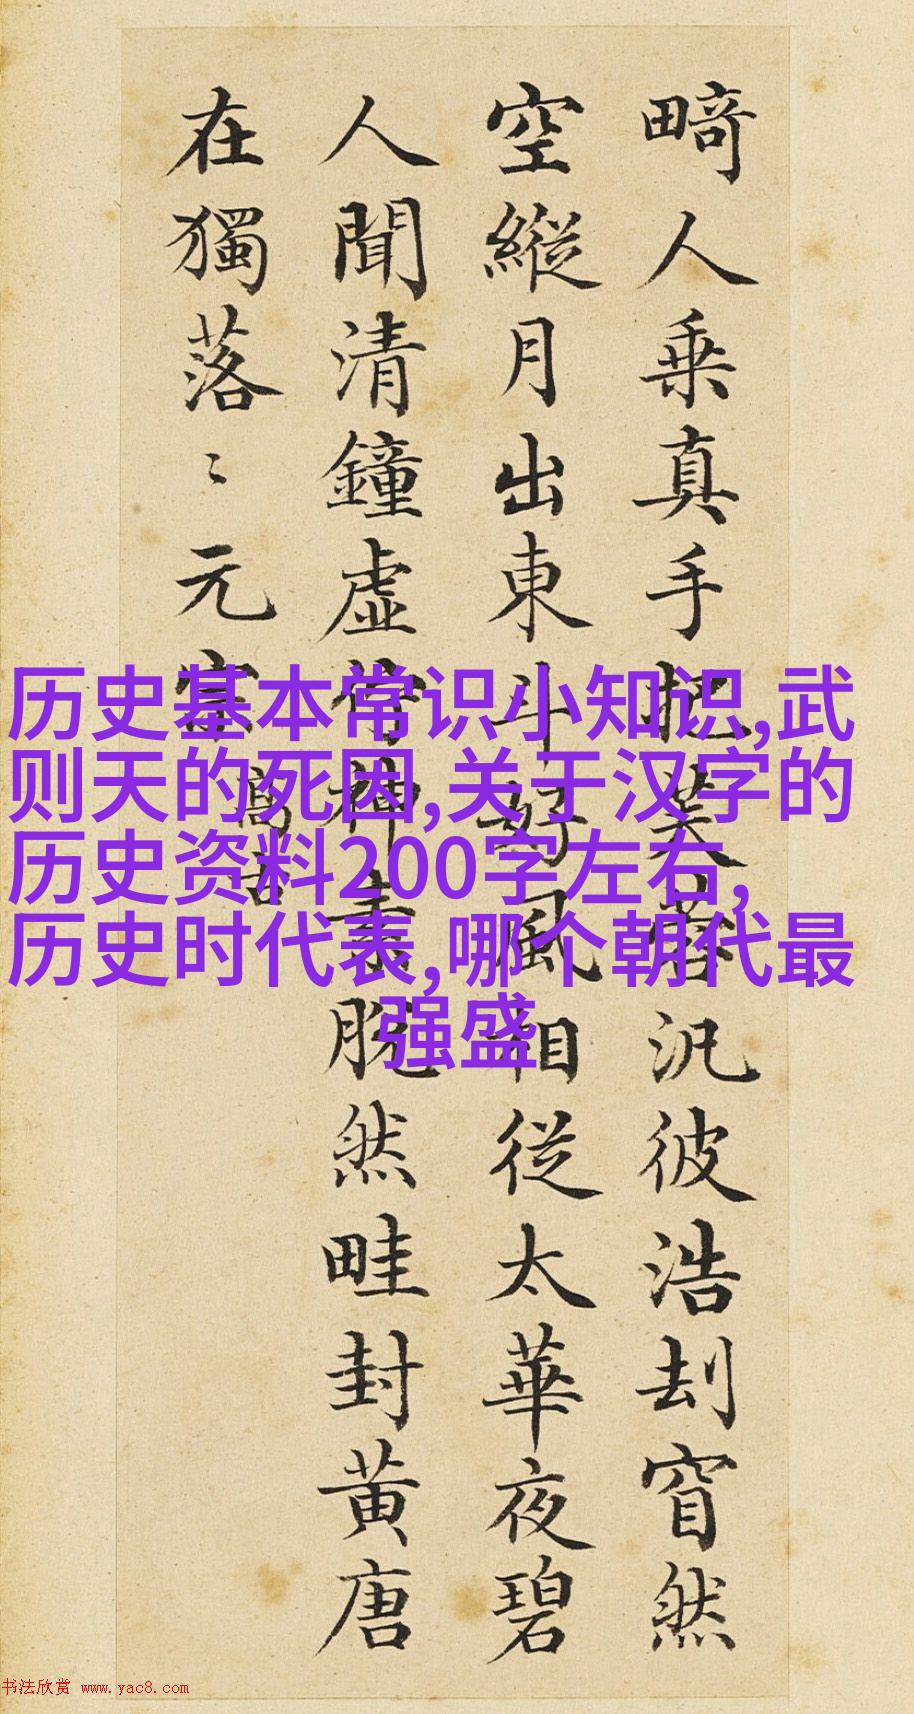 畸人乘真手把芙蓉汎彼浩刦窅然
空縱月出東斗好風相從太華夜碧
人聞清鐘虛佇神素脫然畦封黄唐
在獨落〻元宗
高古
历史基本常识小知识,武
则天的死因,关于汉字的
历史资料200字左右,
历史时代表,哪个朝代最
强盛
书法欣赏 www.yac8.com